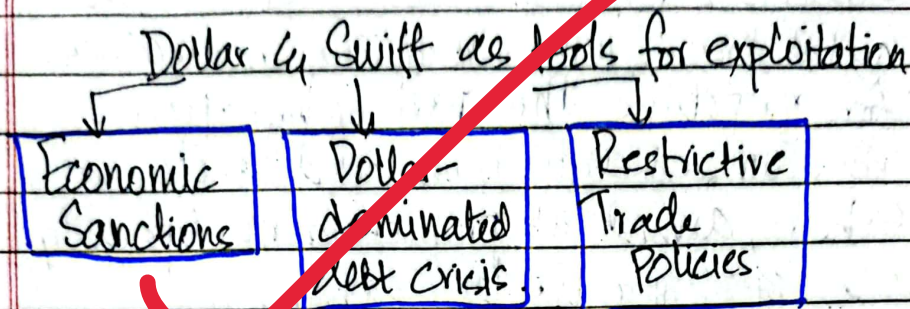 Dollar & Swift as tools for exploitation
Economic
Sanctions
Dollar-
dominated
debt crisis..
Restrictive
Trade
Policies